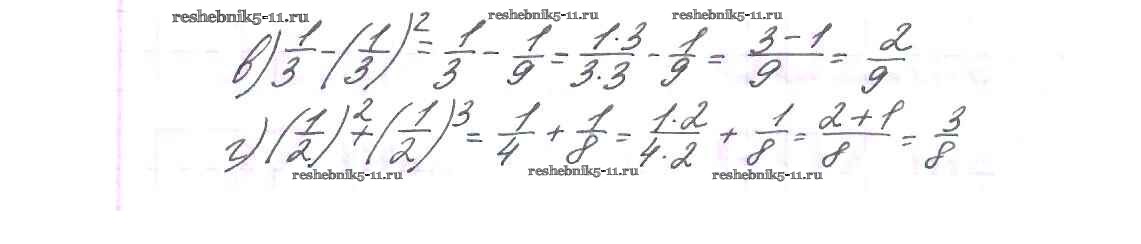 reshebnik5-11.ru reshebnik5-11.ru reshebnik5-11.ru
в) 1/3 - (1/3)² = 1/3 - 1/9 = 1·3/3·3 - 1/9 = 3-1/9 = 2/9
г) (1/2)² + (1/2)³ = 1/4 + 1/8 = 1·2/4·2 + 1/8 = 2+1/8 = 3/8
reshebnik5-11.ru reshebnik5-11.ru reshebnik5-11.ru